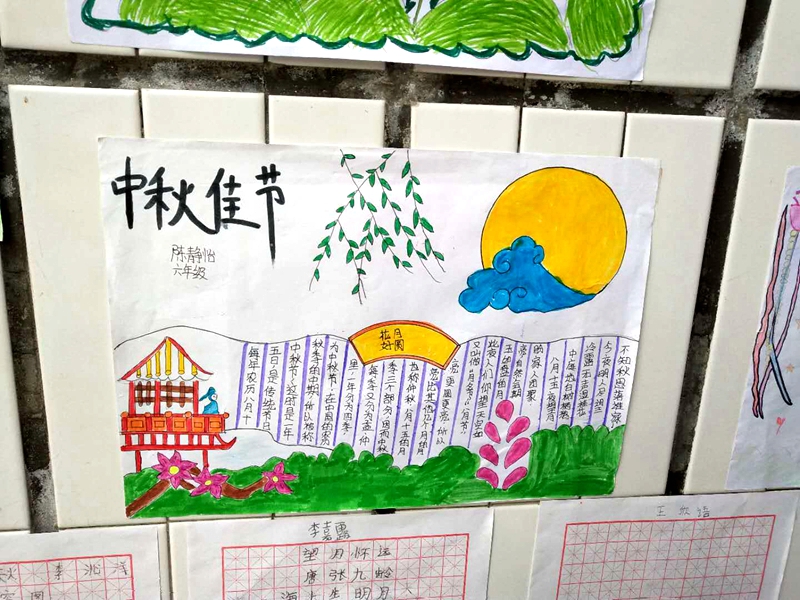 中秋佳节
陈静怡
六年级
花好
月圆
每年农历八月十
五日是传统节日
中秋节,这时是一年
秋季的中期,所以被称
为中秋节,在中国的农历
里,一年分为四季
每季又分为孟、仲
季三个部分,因而中秋
也称仲秋,八月十五的月
亮比其他几个月的月
亮更圆更亮,所以
又叫做"月夕""八月节"
此夜,人们仰望天空如
玉如盘的明月
自然会期
盼家人团聚
八月十五夜望月
中庭地白树栖鸦
冷露无声湿桂花
今夜月明人尽望
不知秋思落谁家
李嘉
望月怀远
唐张九龄
海上生明月
王
李